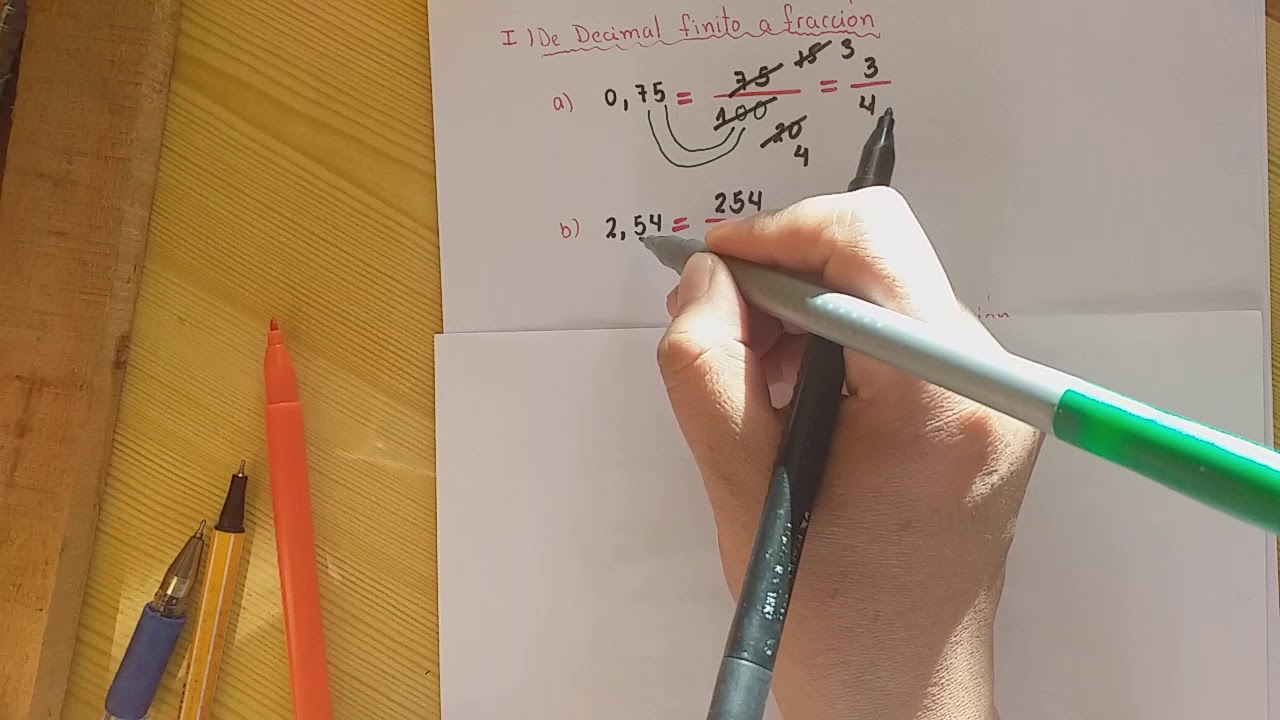 I) De Decimal finito a fracción
a) 0,75 = 75/100 15/20 3/4 = 3/4
b) 2,54 = 254